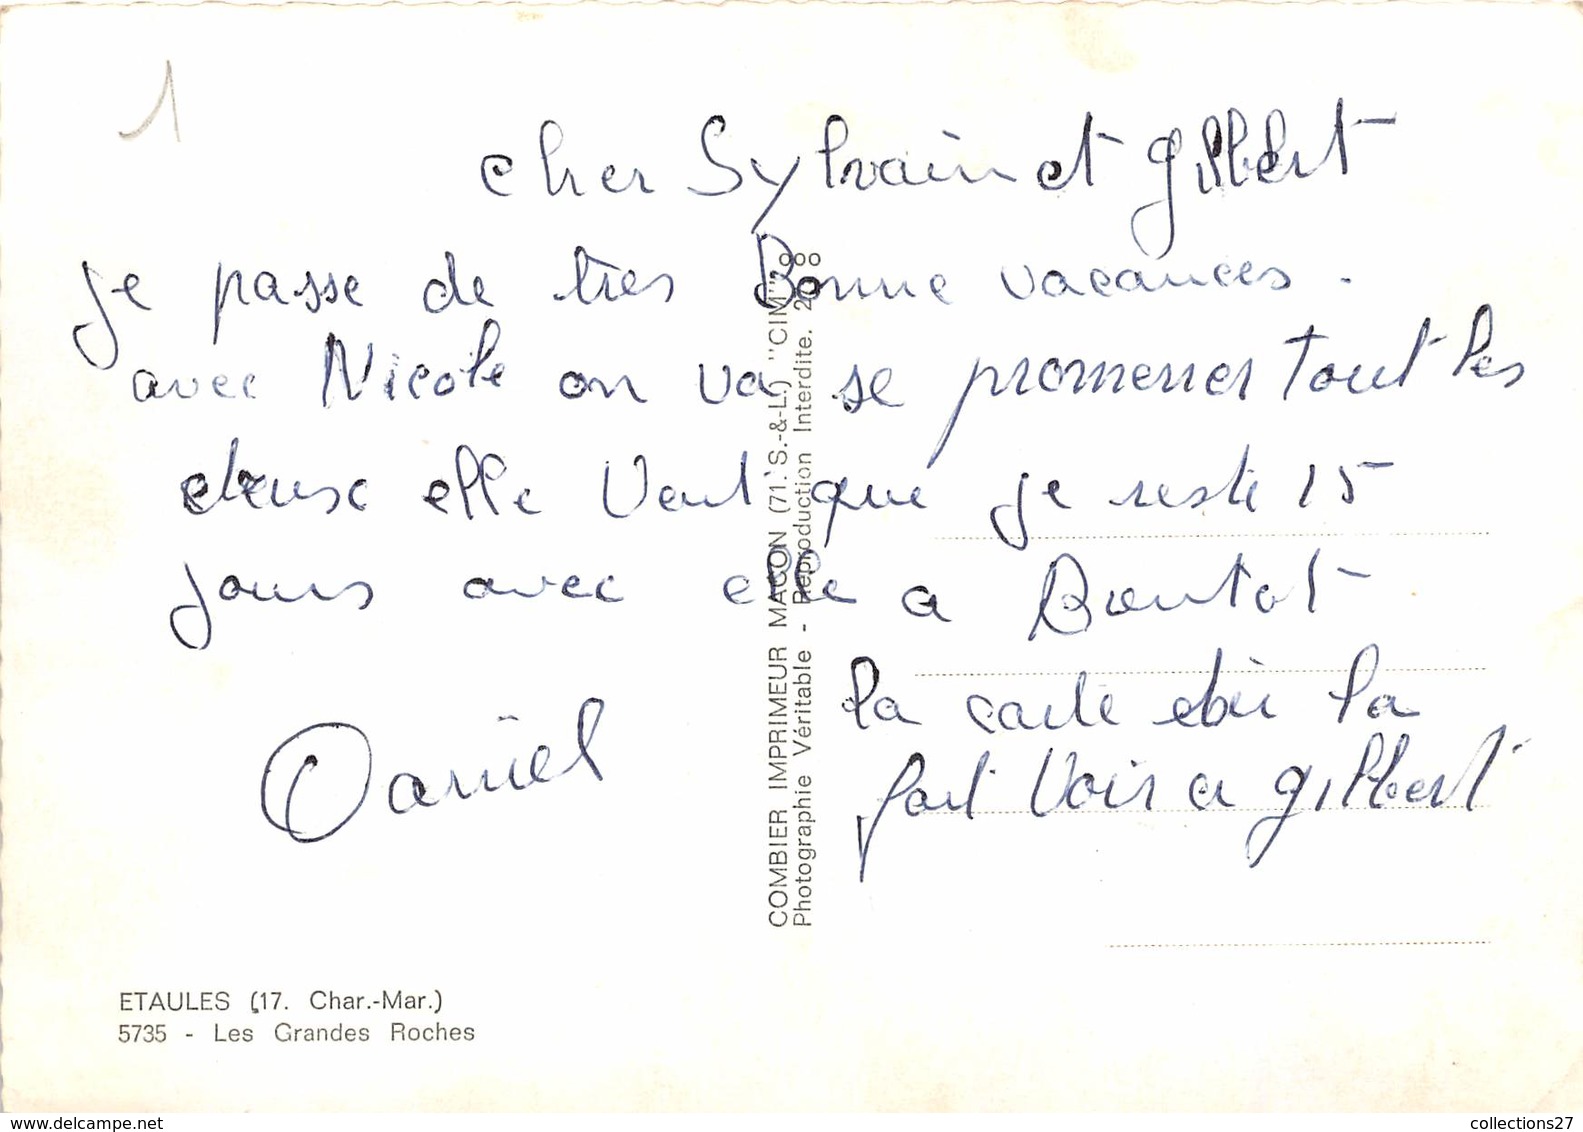 1
cher Sylvain et gilbert
je passe de tres Bonne vacances.
avec Nicole on va se promener tout les
deux elle Veut que je reste 15
jours avec elle a Boutot
la carte
la
fait Voir a gilbert
Daniel
COMBIER IMPRIMEUR MACON (71. S.-&-L.) "CIM"
Photographie Véritable - Reproduction Interdite.
ETAULES (17. Char.-Mar.)
5735 - Les Grandes Roches
www.delcampe.net
collections27